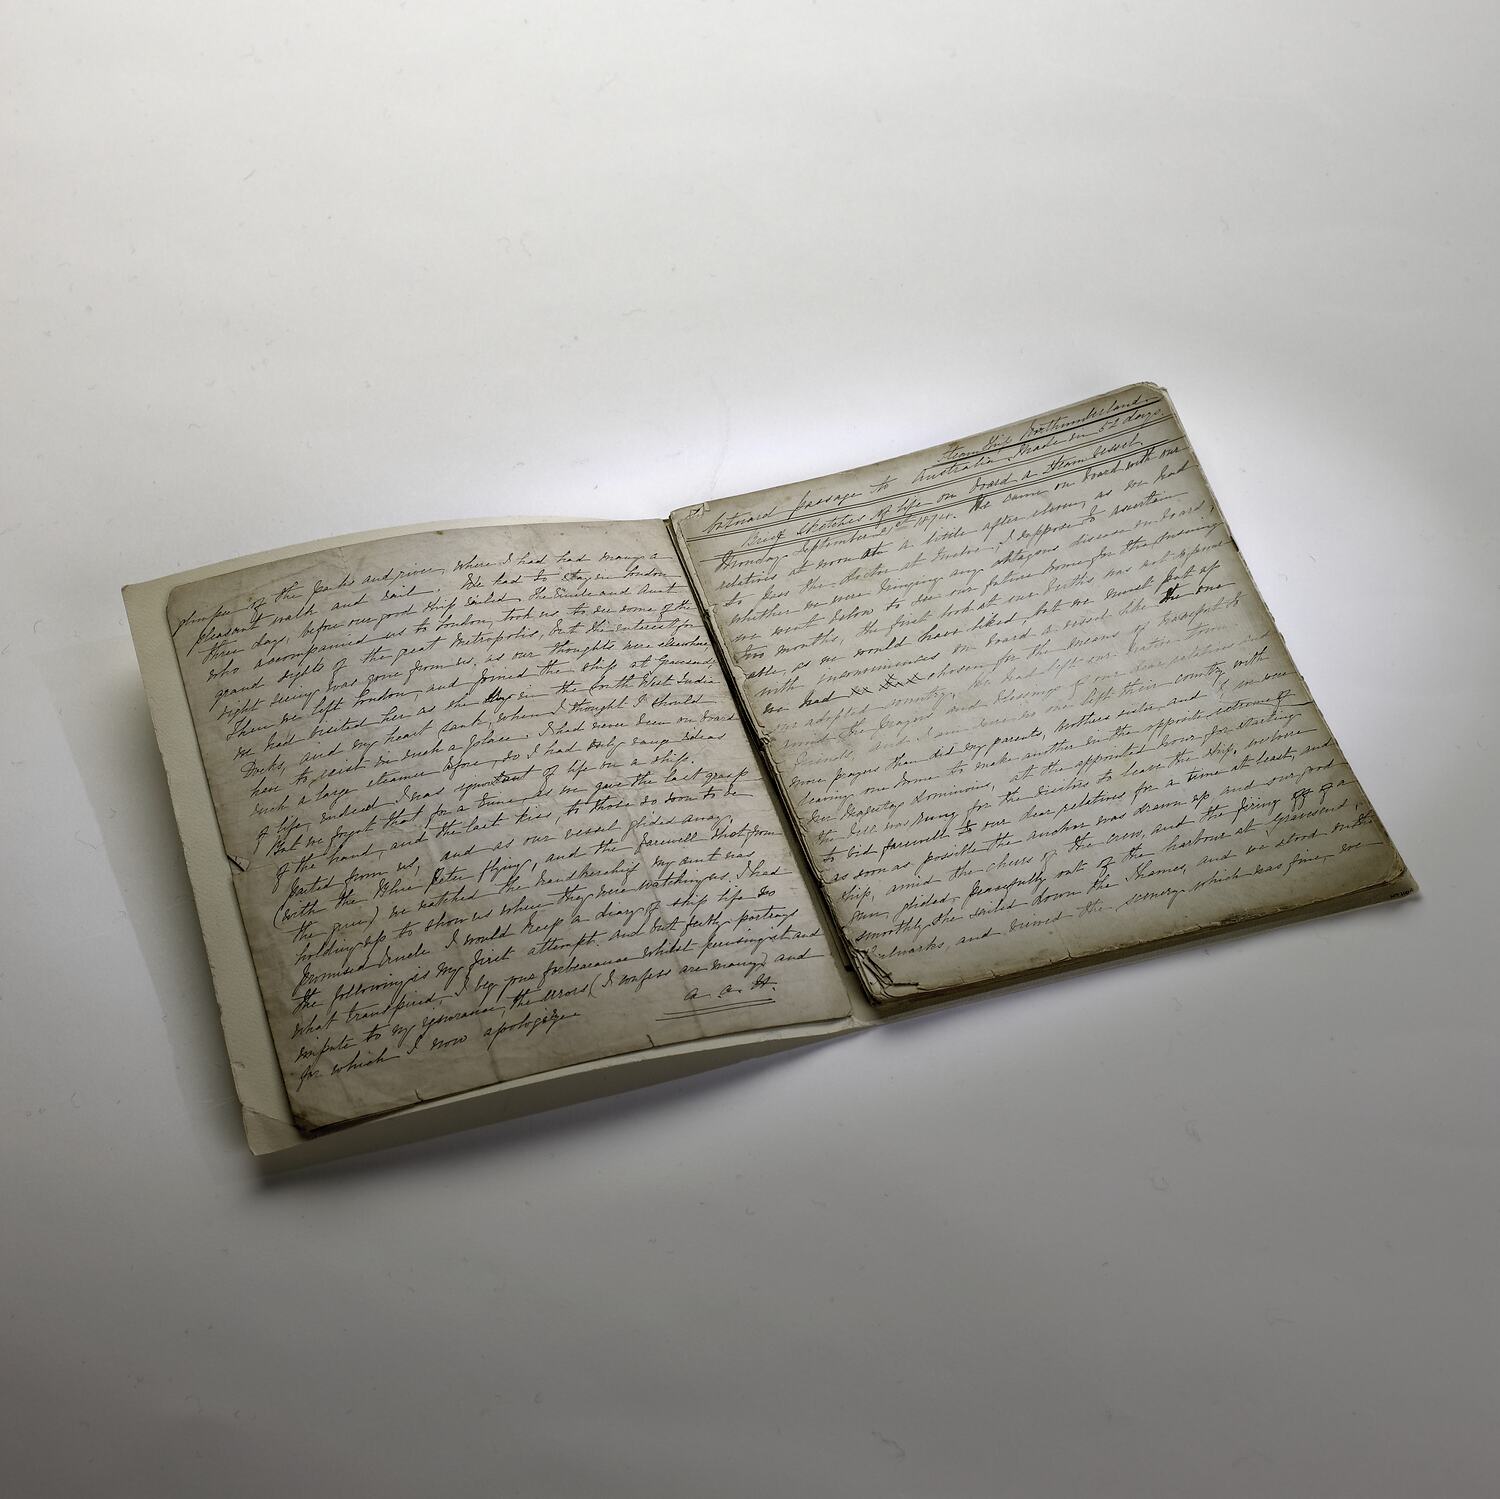 glimpse of the parks and river, where I had had many a
pleasant walk and sail. We had to stay in London
three days, before our good ship sailed. The Uncle and Aunt
who accompanied us to London, took us to see some of the
grand sights of the great Metropolis, but the interest for
sight seeing was gone from us, as our thoughts were elsewhere
Then we left London, and joined the ship at Gravesend,
we had visited her as she lay in the South West India
Docks, and my heart sank, when I thought I should
have to exist in such a place. I had never been on board
such a large steamer before, so I had only vague ideas
of life, indeed I was ignorant of life on a ship.
But we forgot that for a time, as we gave the last grasp
of the hand, and the last kiss, to those so soon to be
parted from us, and as our vessel glided away,
(with the Blue Peter flying, and the farewell shot from
the gun) we watched the handkerchief my aunt was
holding up to show us where they were watching us. I had
promised Uncle I would keep a diary of ship life so
the following is my first attempt, and but feebly portrays
what transpired. I beg your forbearance whilst perusing it and
impute to my ignorance, the errors (I confess are many) and
for which I now apologize
A. A. W.
Steam Ship Northumberland.
Outward passage to Australia Made in 52 days.
Brief Sketches of life on board a Steam Vessel.
Monday September 21st 1874. We came on board with our
relatives at noon at a little after eleven, as we had
to pass the doctor at twelve, I suppose to ascertain
whether we were bringing any contagious diseases on board,
we went below to see our future home for the ensuing
two months, the first look at our berths was not agree
able, as we would have liked, but we must put up
with inconveniences on board a vessel like the one
we had chosen for the means of transport to
our adopted country. We had left our native town
amid the prayers and blessings of our dear relatives and
friends, and I am sure no one left their country with
more prayers than did my parents, brothers sister and I, we were
leaving one home to make another in the opposite extreme of
Her Majestys Dominions, at the appointed hour for starting
the bell was rung for the visitors to leave the ship, we were
to bid farewell to our dear relatives for a time at least, and
as soon as possible the anchor was drawn up and our good
ship, amid the cheers of the crew, and the firing off of a
gun, glided peacefully out of the harbour at Gravesend,
smoothly she sailed down the Thames, and we stood on the
bulwarks, and viewed the scenery which was fine, we